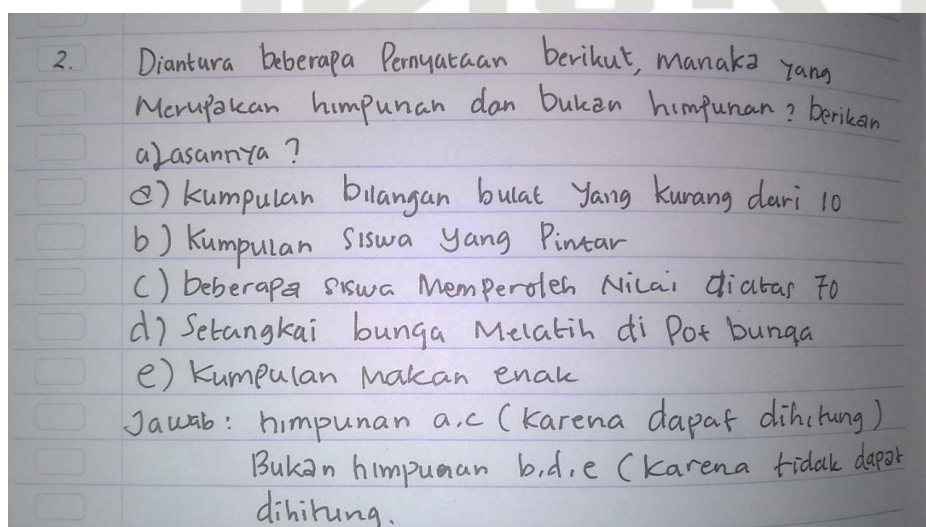 2. Diantara beberapa Pernyataan berikut, manaka yang
Merupakan himpunan dan bukan himpunan? berikan
alasannya?
a) Kumpulan bilangan bulat yang kurang dari 10
b) Kumpulan Siswa yang Pintar
c) beberapa siswa Memperoleh Nilai diatas 70
d) Setangkai bunga Melatih di Pot bunga
e) Kumpulan Makan enak
Jawab: himpunan a.c (Karena dapat dihitung)
Bukan himpunan b.d.e (Karena tidak dapat
dihitung.